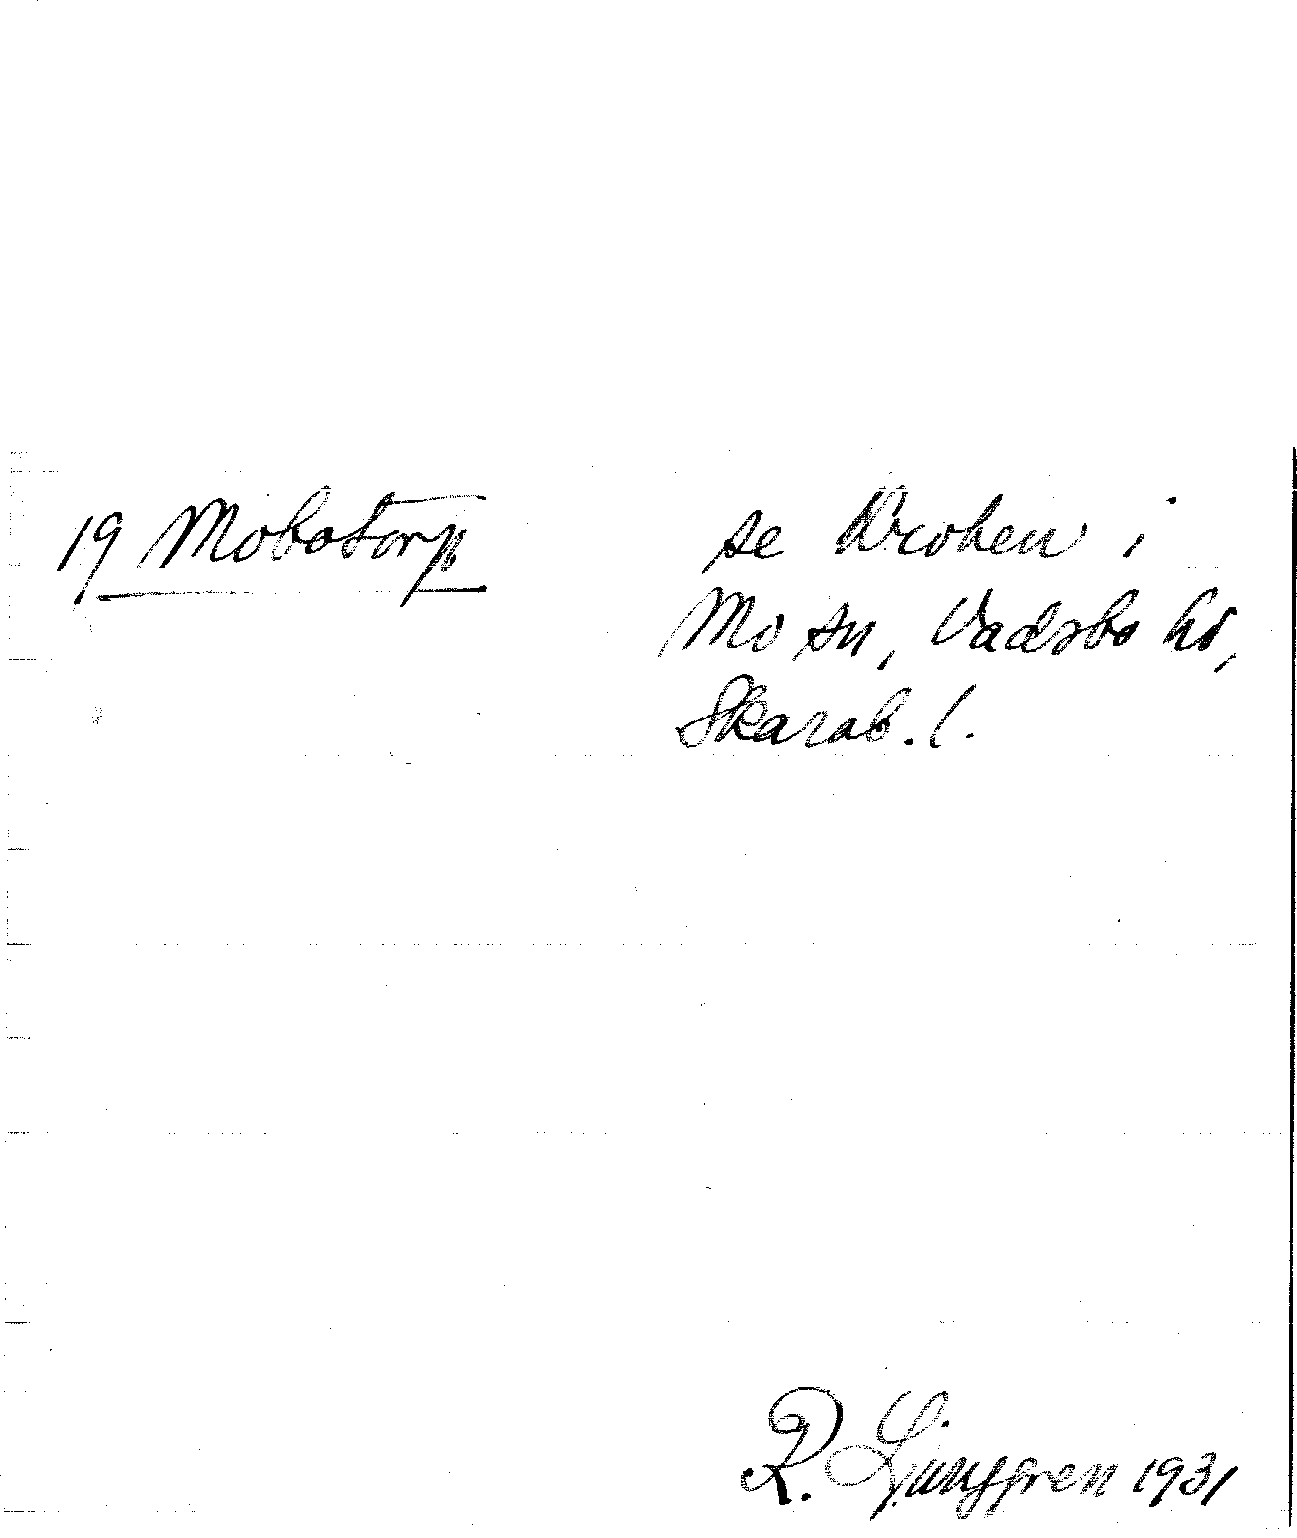 19 Mobotorp
se i
Mo sn, Vadsbo hd,
Skarab. l.
R. Ljunggren 1931